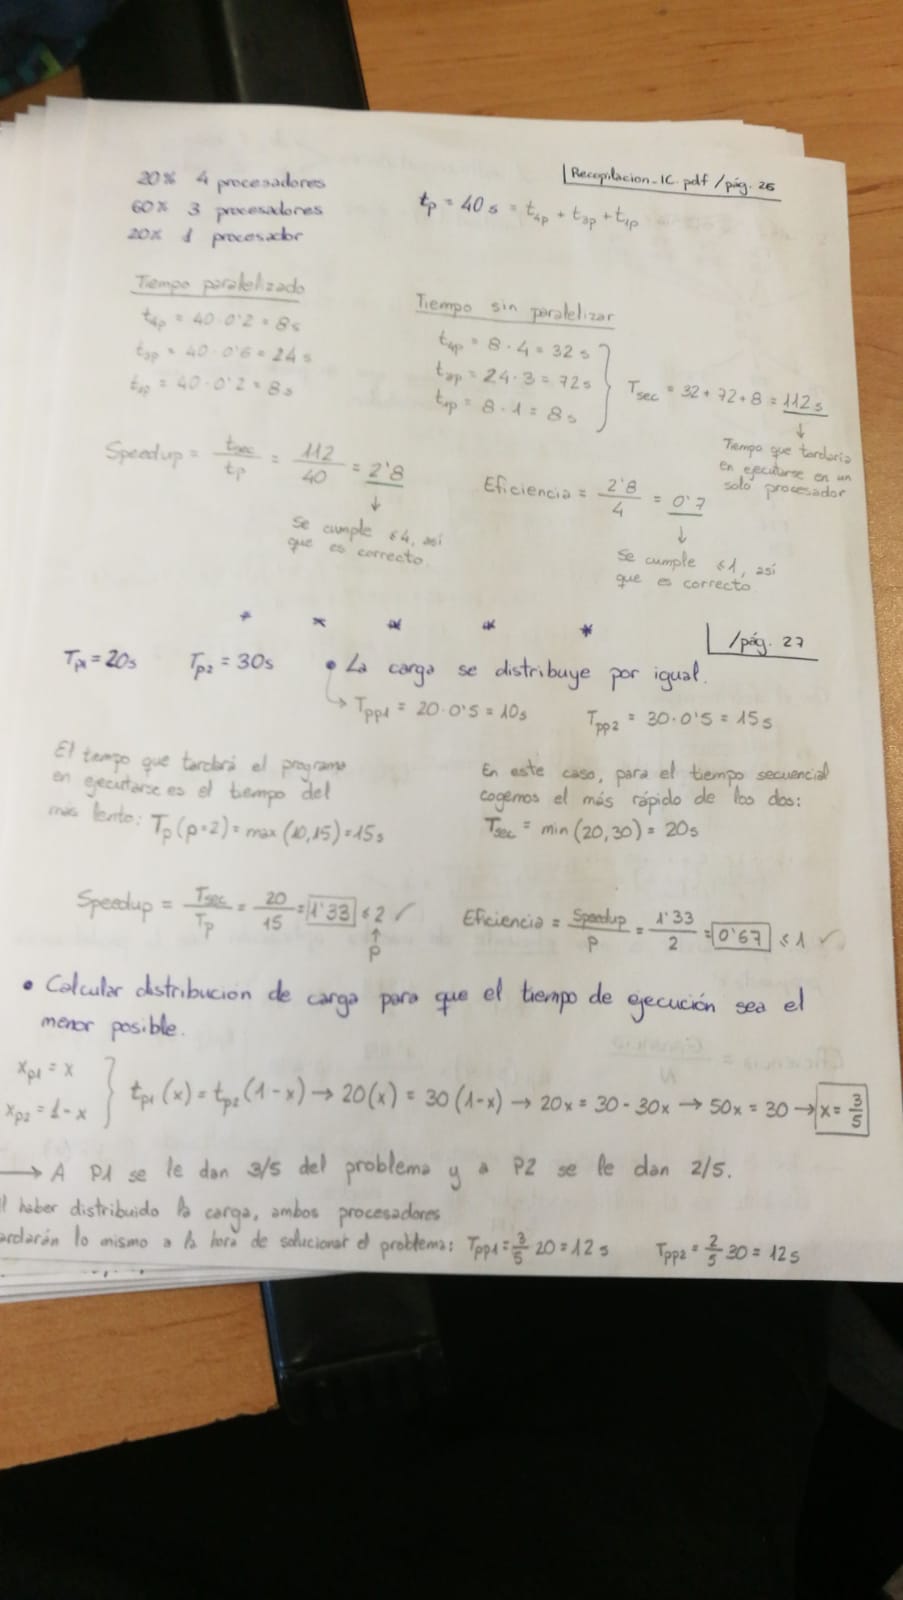 20% 4 procesadores
60% 3 procesadores
20% 1 procesador
tp = 40 s = t4p + t3p + t1p
Recopilacion_IC.pdf /pág. 26
Tiempo paralelizado
t4p = 40·0'2 = 8s
t3p = 40·0'6 = 24 s
t1p = 40·0'2 = 8s
Tiempo sin paralelizar
t4p = 8·4 = 32 s
t3p = 24·3 = 72s
t1p = 8·1 = 8s
Tsec = 32 + 72 + 8 = 112 s
↓
Tiempo que tardaría
en ejecutarse en un
solo procesador
Speedup = tsec / tp = 112 / 40 = 2'8
↓
Se cumple ≤4, así
que es correcto.
Eficiencia = 2'8 / 4 = 0'7
↓
Se cumple ≤1, así
que es correcto
* * * * *
/pág. 27
Tp1 = 20s Tp2 = 30s • La carga se distribuye por igual.
↳ Tpp1 = 20·0'5 = 10s Tpp2 = 30·0'5 = 15s
El tiempo que tardará el programa
en ejecutarse es el tiempo del
más lento: Tp (p=2) = max (10,15) = 15s
En este caso, para el tiempo secuencial
cogemos el más rápido de los dos:
Tsec = min (20,30) = 20s
Speedup = Tsec / Tp = 20 / 15 = 1'33 ≤ 2 ✓
↑
p
Eficiencia = Speedup / p = 1'33 / 2 = 0'67 ≤ 1 ✓
• Calcular distribucion de carga para que el tiempo de ejecución sea el
menor posible.
xp1 = x
xp2 = 1-x
} tp1 (x) = tp2 (1-x) → 20(x) = 30 (1-x) → 20x = 30 - 30x → 50x = 30 → x = 3/5
→ A P1 se le dan 3/5 del problema y a P2 se le dan 2/5.
l haber distribuido la carga, ambos procesadores
ardarán lo mismo a la hora de solucionar el problema: Tpp1 = 3/5 20 = 12 s Tpp2 = 2/5 30 = 12s